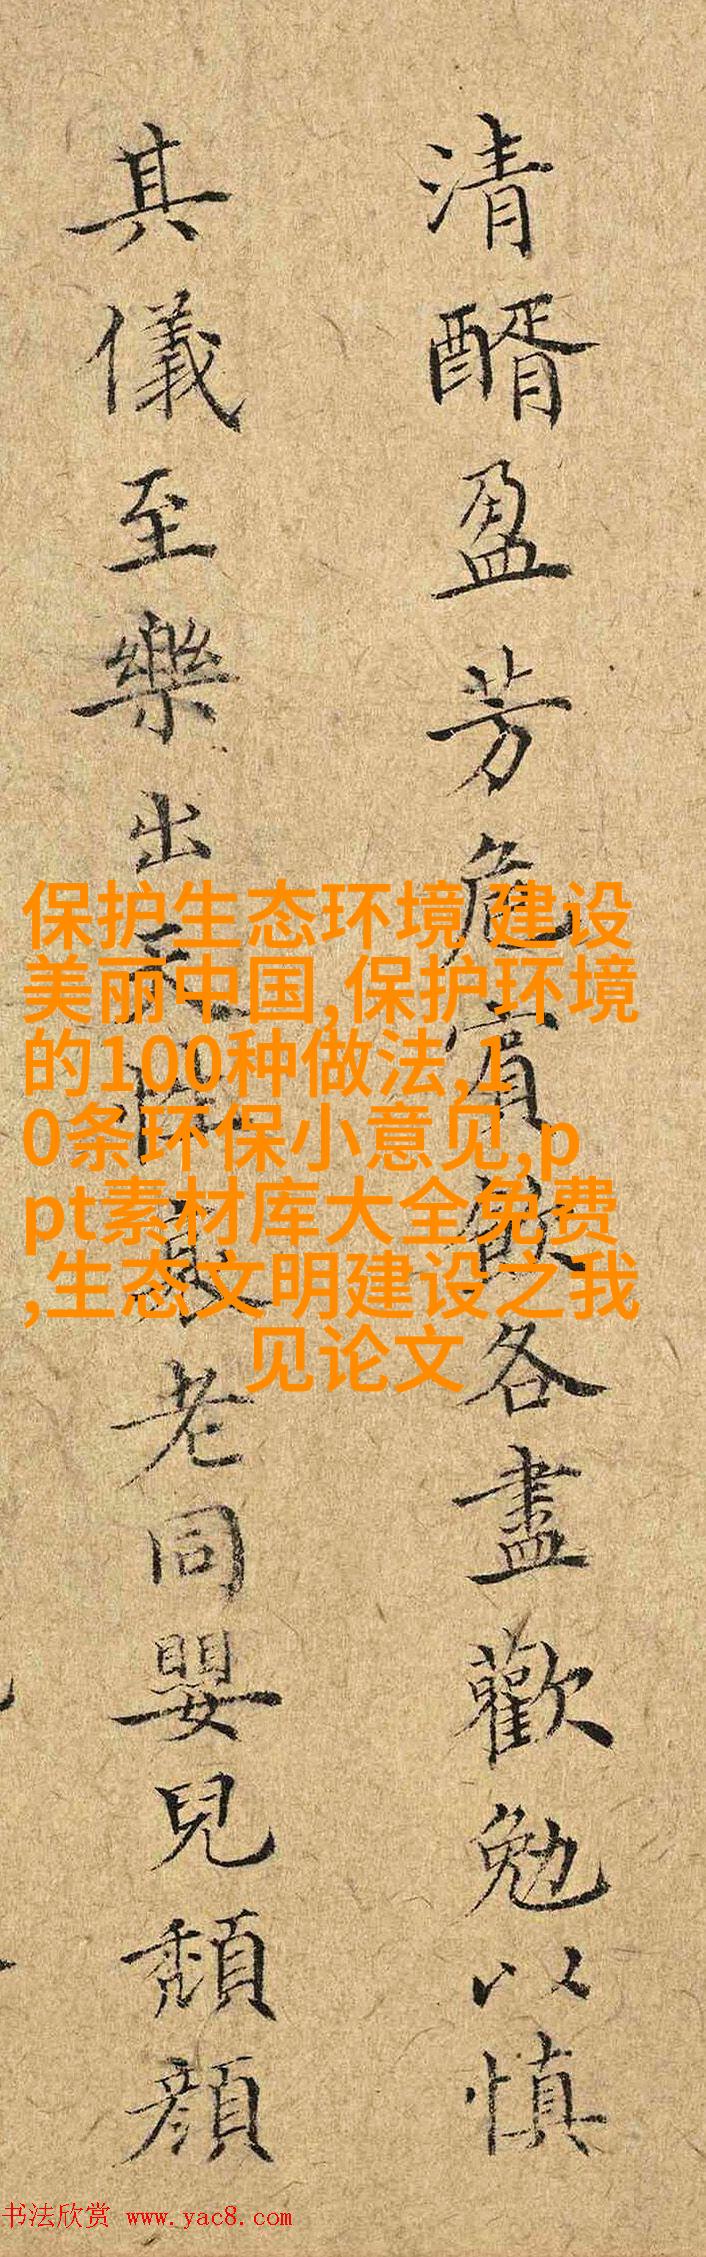 清醑盈芳危賓各盡歡勉以慎
其儀至樂出天性衰老同嬰兒頹顏
保护生态环境 建设
美丽中国,保护环境
的100种做法,1
0条环保小意见,p
pt素材库大全免费
,生态文明建设之我
见论文
书法欣赏 www.yac8.com